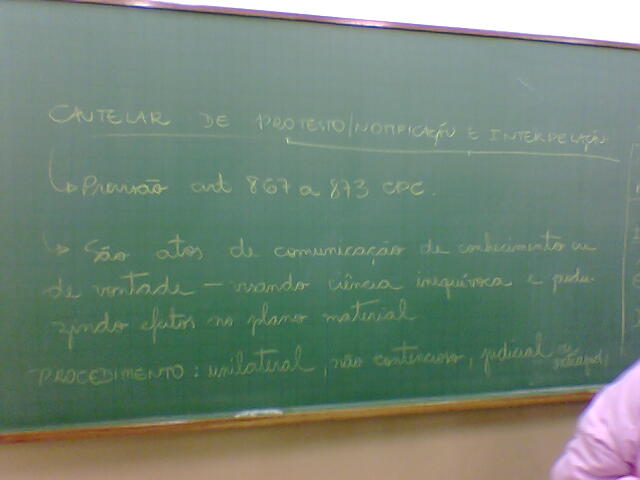 CAUTELAR DE PROTESTO/NOTIFICAÇÃO E INTERPELAÇÃO
↳ Previsão art 867 a 873 CPC.
↳ São atos de comunicação de conhecimento ou
de vontade – visando ciência inequívoca e produ-
zindo efeitos no plano material
PROCEDIMENTO: unilateral, não contencioso, judicial ou
extrajud.